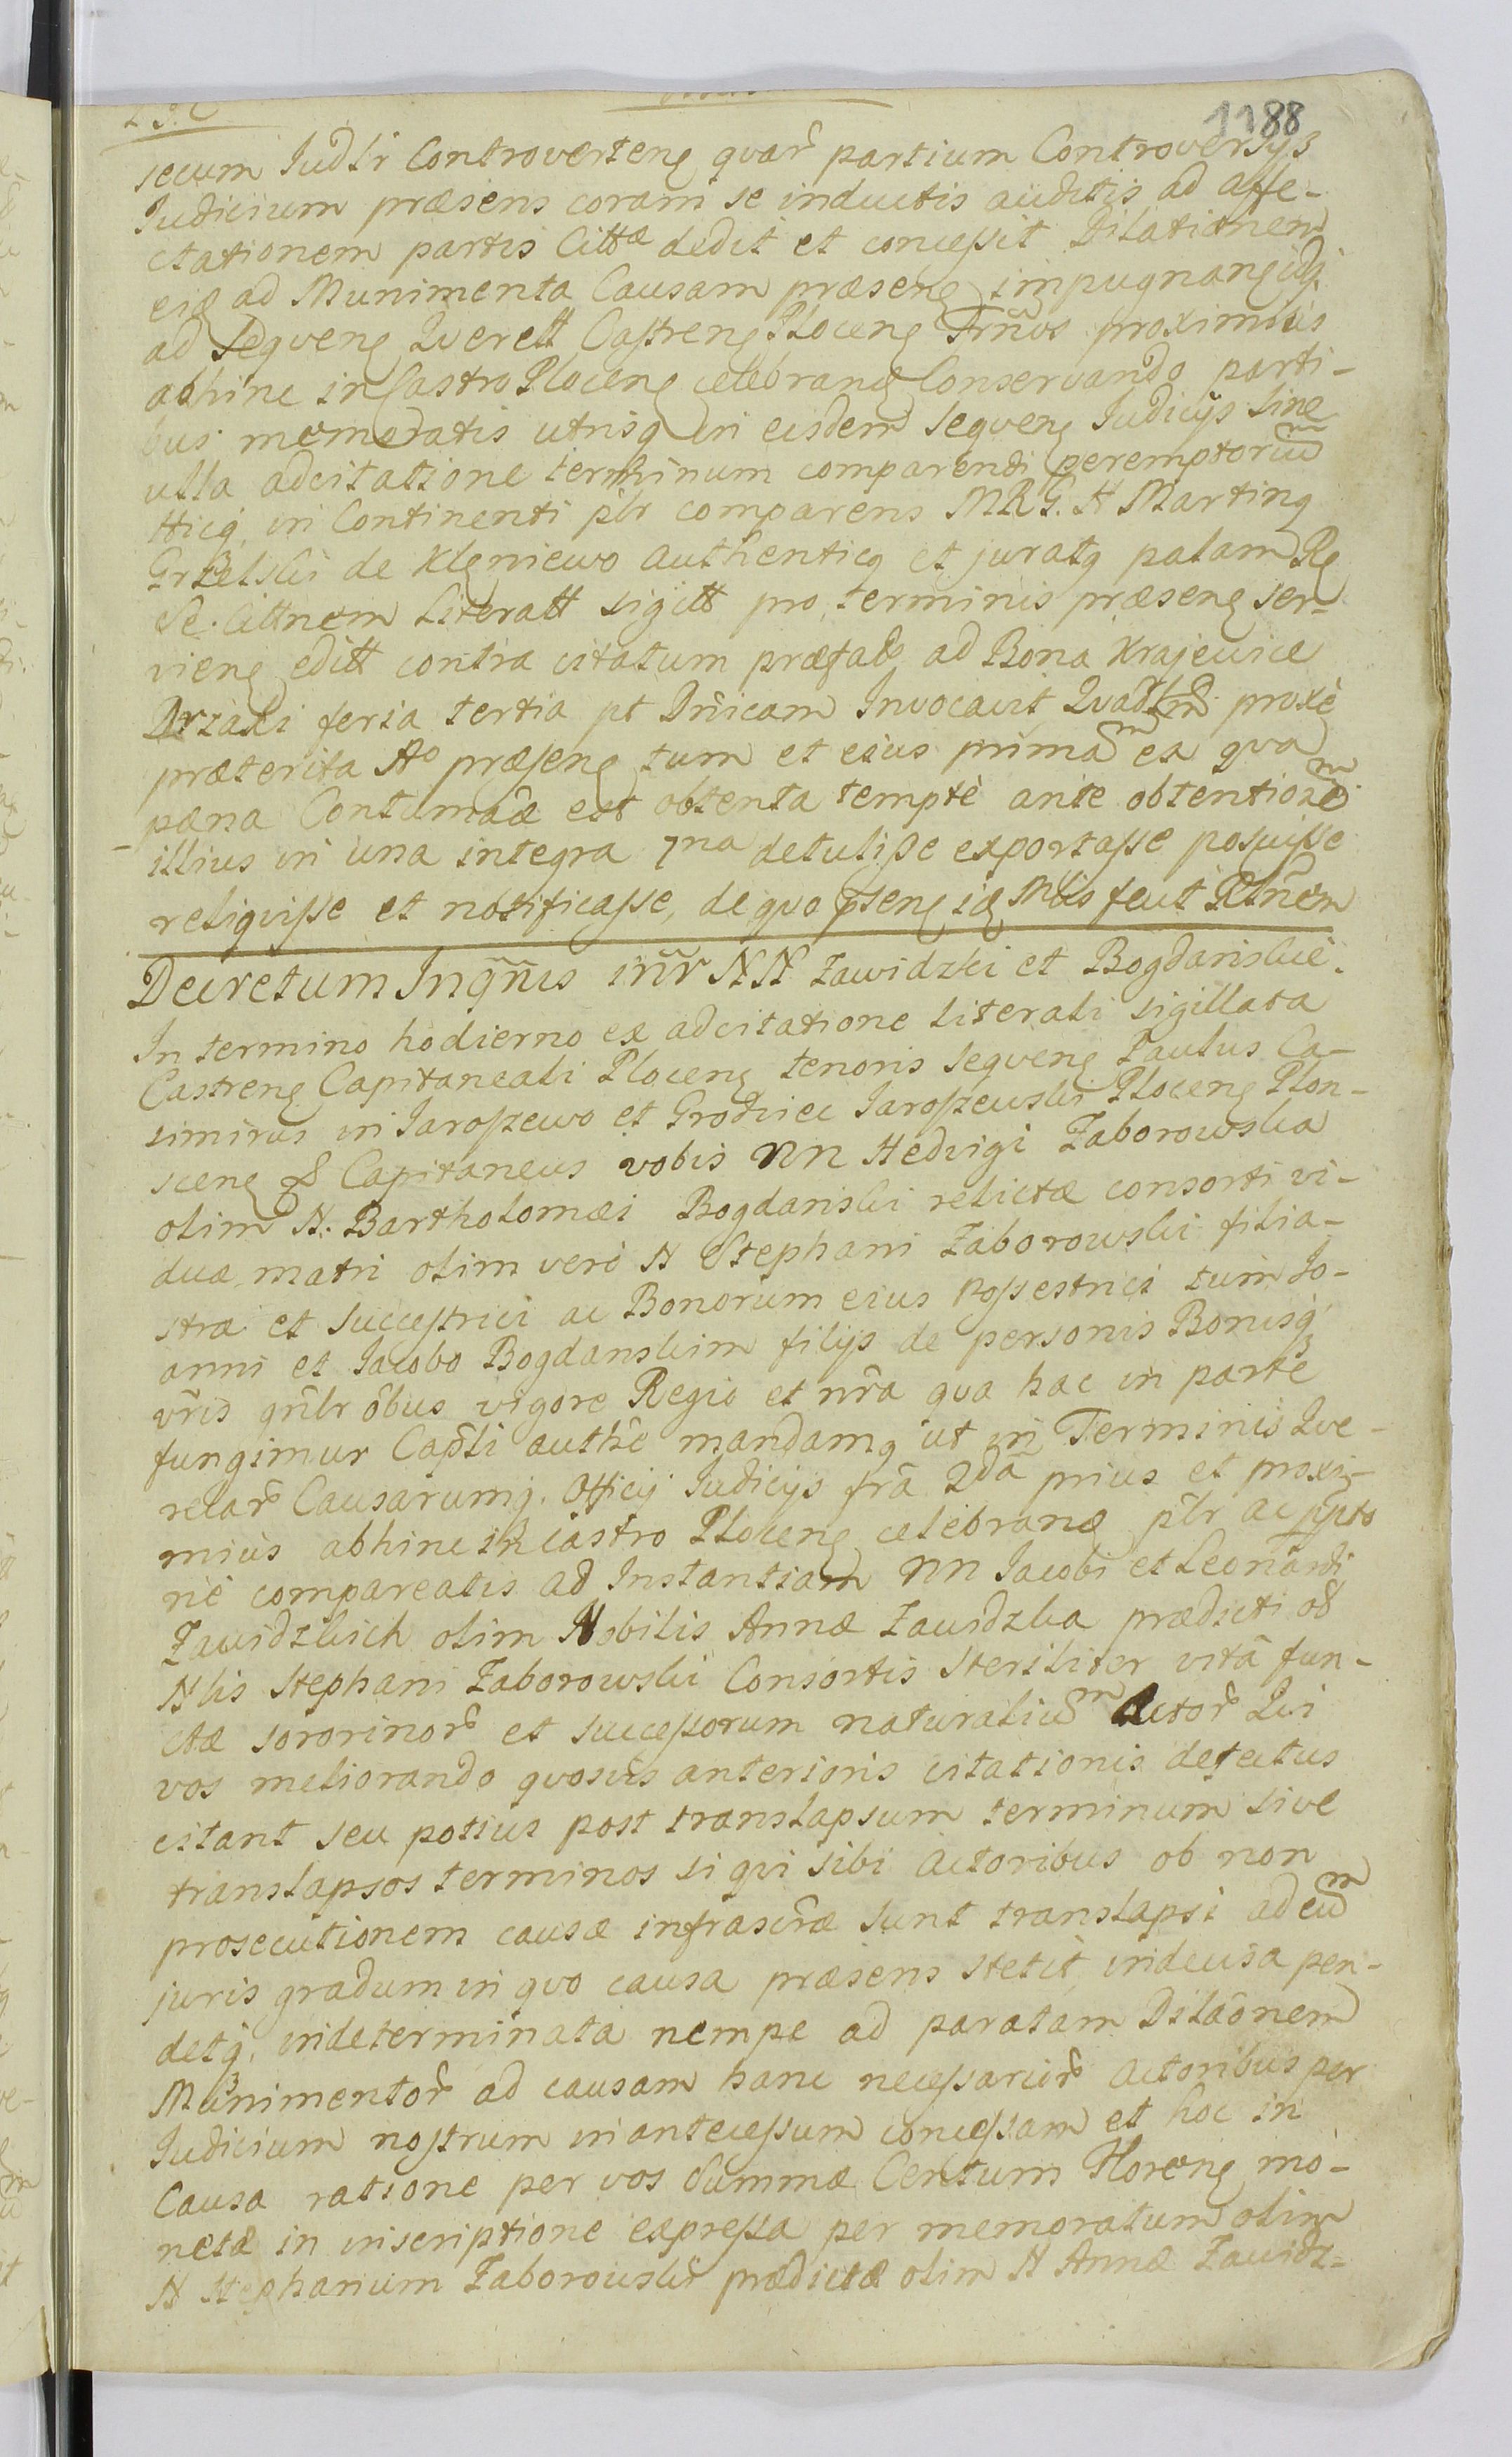 1188
secum Judlr Controverteng qvar̃ partium Controversys
Judicium præsens coram se inductis auditis ad affe-
ctationem partis Cittæ dedit et concessit Dilationem
eiæ ad Munimenta Causam præseng impugnang
ad seqveng Qverell Castreng Ploceng Trm̃os proximius
abhinc in Castro Ploceng celebrand Conservando parti-
bus memoratis utrisq in eisdem seqveng Judicys sine
ulla adcitatione terminum comparendi peremptoriũm
Hicq. in Continenti plr comparens MRG. N Marting
Grzelski de Kleniewo authenticq et juratq palam Rg
Se. Cittnem Literatt sigitt pro terminis præseng ser-
vieng editt contra citatum præfat ad Bona Krajewice
Drzazki feria tertia pt Dn̄icam Invocavit Qvadr proxè
præterita Aº præseng tum et eius primam ea qva
pæna Contumaciæ est obtenta tempte ante obtentionẽm
illius in una integra 7na detulisse exportasse posuisse
reliqvisse et notificasse, de qvo pseng Mlis fecit Rltñem
Decretum Inqñis iñr NN Zawidzki et Bogdanskie.
In termino hodierno ex adcitatione literali sigillata
Castreng Capitaneali Ploceng tenoris seqveng Paulus Ca-
simirus in Jaroszewo et Grodziec Jaroszewski Ploceng Plon-
sceng & Capitaneus vobis NN Hedvigi Zaborowska
olim N. Bartholomæi Bogdanski relictæ consorti vi-
duæ matri olim verò N Stephani Zaborowski filia-
stra et Succestrici ac Bonorum eius Possestrici tum Jo-
anni et Jacobo Bogdanskim filijs de personis Bonisq
vr̃is gñlr õbus vigore Regio et nr̃a qva hac in parte
fungimur Capl̃i authẽ mandamq ut in Terminis Qve-
relar̃ Causarumq. Officij Judicijs frã 2da prius et proxi-
mius abhinc in Castro Ploceng celebrand plr ac ppto
riè compareatis ad Instantiam NN Jacobi et Leonardi
Zawidzkich olim Nobilis Annæ Zawidzka prædicti ol
Nlis Stephani Zaborowski Consortis steriliter vitâ fun-
ctæ sororinor̃ et successorum naturaliũm Actor̃ Qvi
vos meliorando qvosvis anterioris citationis defectus
citant seu potius post translapsum terminum sive
translapsos terminos si qvi sibi Actoribus ob non
prosecutionem causæ infrascr̃æ sunt translapsi ad eũm
juris gradum in qvo causa præsens stetit indecisa pen-
detq. indeterminata nempe ad paratam Dilaõnem
Munimentor̃ ad causam hanc necessarior̃ Actoribus per
Judicium nostrum in antecessum concessam et hoc in
Causa ratione per vos Summæ Centum Floreng mo-
netæ in inscriptione expressa per memoratum olim
N Stephanum Zaborowski prædictæ olim N Annæ Zawidz-